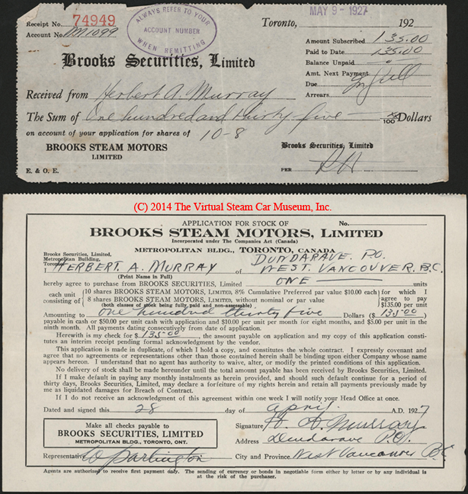 Receipt No. 74949
Account No. DM1099
ALWAYS REFER TO YOUR ACCOUNT NUMBER WHEN REMITTING
Toronto, MAY 9 - 1927 192
Amount Subscribed 135.00
Paid to Date 135.00
Balance Unpaid
Amt. Next Payment In full
Due
Arrears
Brooks Securities, Limited
Received from Herbert A. Murray
The Sum of One hundred and thirty five 00/100 Dollars
on account of your application for shares of 10-8
BROOKS STEAM MOTORS
LIMITED
Brooks Securities, Limited
E. & O. E.
PER
(C) 2014 The Virtual Steam Car Museum, Inc.
APPLICATION FOR STOCK OF No.
BROOKS STEAM MOTORS, LIMITED
Incorporated under The Companies Act (Canada)
METROPOLITAN BLDG., TORONTO, CANADA
Brooks Securities, Limited,
Metropolitan Building,
Toronto,
I, HERBERT A. MURRAY of DUNDARAVE P.O. WEST VANCOUVER, B.C.
(Print Name in Full)
hereby agree to purchase from BROOKS SECURITIES, LIMITED ONE
each unit consisting of
10 shares BROOKS STEAM MOTORS, LIMITED, 8% Cumulative Preferred par value $10.00 each
8 shares BROOKS STEAM MOTORS, LIMITED, without nominal or par value
(both classes of stock being fully paid and non-assessable)
for which I agree to pay $135.00 per unit
Amounting to One hundred thirty five Dollars ($ 135.00 )
payable in cash or $50.00 per unit with this application, and $10.00 per unit per month for eight months, and $5.00 per unit in the
ninth month. All payments dating consecutively from date of application.
Herewith is my check for $ 135.00, the amount payable on application and my copy of this application consti-
tutes an interim receipt pending formal acknowledgment by the vendor.
This application is made in duplicate, of which I hold a copy, and constitutes the whole contract. I expressly covenant and
agree that no agreements or representations other than those contained herein shall be binding upon either Company whose name
appears herein. I understand that no agent has authority to waive, alter, or modify the printed conditions of this application.
No delivery of stock shall be made hereunder until the total amount payable has been received by Brooks Securities, Limited.
If I make default in paying any monthly instalments as herein provided, and should such default continue for a period of
thirty days, Brooks Securities, Limited, may declare a forfeiture of my rights herein and retain all payments previously made by
me as liquidated damages for Breach of Contract.
If I do not receive an acknowledgment of this agreement within one week I will notify your Head Office at once.
Dated and signed this 28 day of April A.D. 1927
Make all checks payable to
BROOKS SECURITIES, LIMITED
METROPOLITAN BLDG., TORONTO, ONT.
Signature H. A. Murray
Address Dundarave P.O.
Representative W Partington
City and Province West Vancouver B.C.
Agents are authorized to receive first payment only. The sending of currency or bonds in negotiable form either by letter or by any individual is
at the risk of the purchaser.